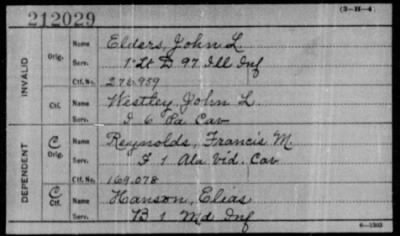 212029
(3-H-4)
INVALID
Orig.
Name Elders, John L.
Serv. 1 Lt D 97 Ill Inf
Ctf. No. 276.959
Ctf.
Name Westley, John L.
Serv. I 6 Pa Cav
DEPENDENT
C
Orig.
Name Reynolds, Francis M.
Serv. F 1 Ala Vid. Cav
Ctf. No. 169.078
C
Ctf.
Name Hanson, Elias
Serv. B 1 Md Inf